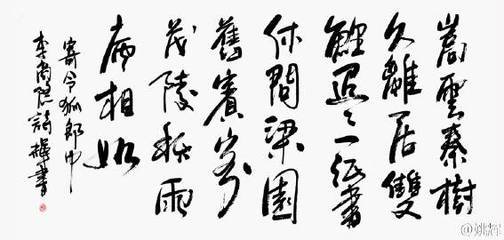 嵩雲秦樹
久離居雙
鯉迢々一纸書
休問梁園
舊賓客
茂陵秋雨
病相如
寄令狐郎中
李商隐詩輝書
@姚辉